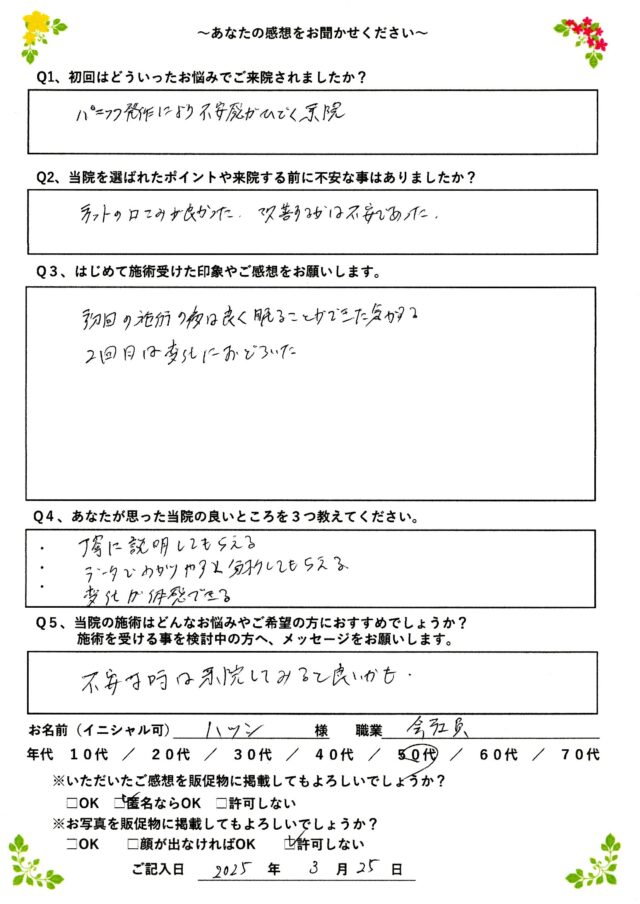 ～あなたの感想をお聞かせください～
Q1、初回はどういったお悩みでご来院されましたか？
パニック発作により不安感がひどく来院
Q2、当院を選ばれたポイントや来院する前に不安な事はありましたか？
ネットの口コミが良かった。改善するかは不安であった。
Q３、はじめて施術受けた印象やご感想をお願いします。
初回の施術の夜は良く眠ることができた気がする
2回目は変化におどろいた
Q４、あなたが思った当院の良いところを３つ教えてください。
・丁寧に説明してもらえる
・データでわかりやすく分析してもらえる
・変化が体感できる
Q５、当院の施術はどんなお悩みやご希望の方におすすめでしょうか？
施術を受ける事を検討中の方へ、メッセージをお願いします。
不安な時は来院してみると良いかも。
お名前（イニシャル可） 様 職業 会社員
年代 １０代 ／ ２０代 ／ ３０代 ／ ４０代 ／ ５０代 ／ ６０代 ／ ７０代
※いただいたご感想を販促物に掲載してもよろしいでしょうか？
□OK □匿名ならOK □許可しない
※お写真を販促物に掲載してもよろしいでしょうか？
□OK □顔が出なければOK □許可しない
ご記入日 2025 年 3 月 25 日